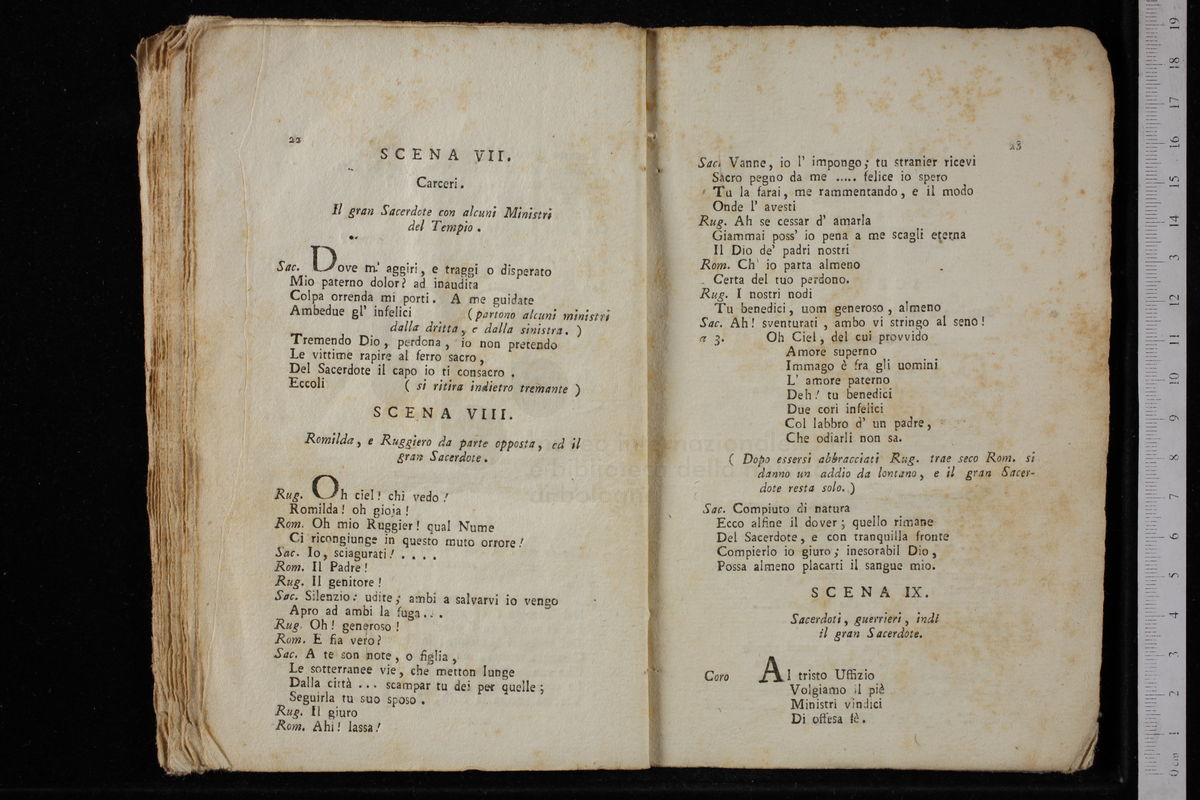 22
SCENA VII.
Carceri.
Il gran Sacerdote con alcuni Ministri
del Tempio.
Sac. Dove m' aggiri, e traggi o disperato
Mio paterno dolor? ad inaudita
Colpa orrenda mi porti. A me guidate
Ambedue gl' infelici (partono alcuni ministri
dalla dritta, e dalla sinistra.)
Tremendo Dio, perdona, io non pretendo
Le vittime rapire al ferro sacro,
Del Sacerdote il capo io ti consacro.
Eccoli ( si ritira indietro tremante )
SCENA VIII.
Romilda, e Ruggiero da parte opposta, ed il
gran Sacerdote.
Rug. Oh ciel! chi vedo!
Romilda! oh gioja!
Rom. Oh mio Ruggier! qual Nume
Ci ricongiunge in questo muto orrore!
Sac. Io, sciagurati! . . . .
Rom. Il Padre!
Rug. Il genitore!
Sac. Silenzio: udite; ambi a salvarvi io vengo
Apro ad ambi la fuga . . .
Rug. Oh! generoso!
Rom. E fia vero?
Sac. A te son note, o figlia,
Le sotterranee vie, che metton lunge
Dalla città ... scampar tu dei per quelle;
Seguirla tu suo sposo.
Rug. Il giuro
Rom. Ahi! lassa!
23
Sac. Vanne, io l' impongo; tu stranier ricevi
Sacro pegno da me ..... felice io spero
Tu la farai, me rammentando, e il modo
Onde l' avesti
Rug. Ah se cessar d' amarla
Giammai poss' io pena a me scagli eterna
Il Dio de' padri nostri
Rom. Ch' io parta almeno
Certa del tuo perdono.
Rug. I nostri nodi
Tu benedici, uom generoso, almeno
Sac. Ah! sventurati, ambo vi stringo al seno!
a 3. Oh Ciel, del cui provvido
Amore superno
Immago è fra gli uomini
L' amore paterno
Deh! tu benedici
Due cori infelici
Col labbro d' un padre,
Che odiarli non sa.
( Dopo essersi abbracciati Rug. trae seco Rom. si
danno un addio da lontano, e il gran Sacer-
dote resta solo.)
Sac. Compiuto di natura
Ecco alfine il dover; quello rimane
Del Sacerdote, e con tranquilla fronte
Compierlo io giuro; inesorabil Dio,
Possa almeno placarti il sangue mio.
SCENA IX.
Sacerdoti, guerrieri, indi
il gran Sacerdote.
Coro Al tristo Uffizio
Volgiamo il piè
Ministri vindici
Di offesa fè.